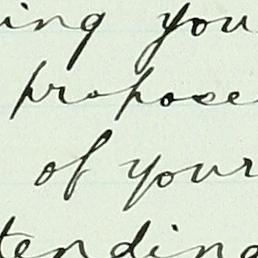 ing you
propose
of your
tending